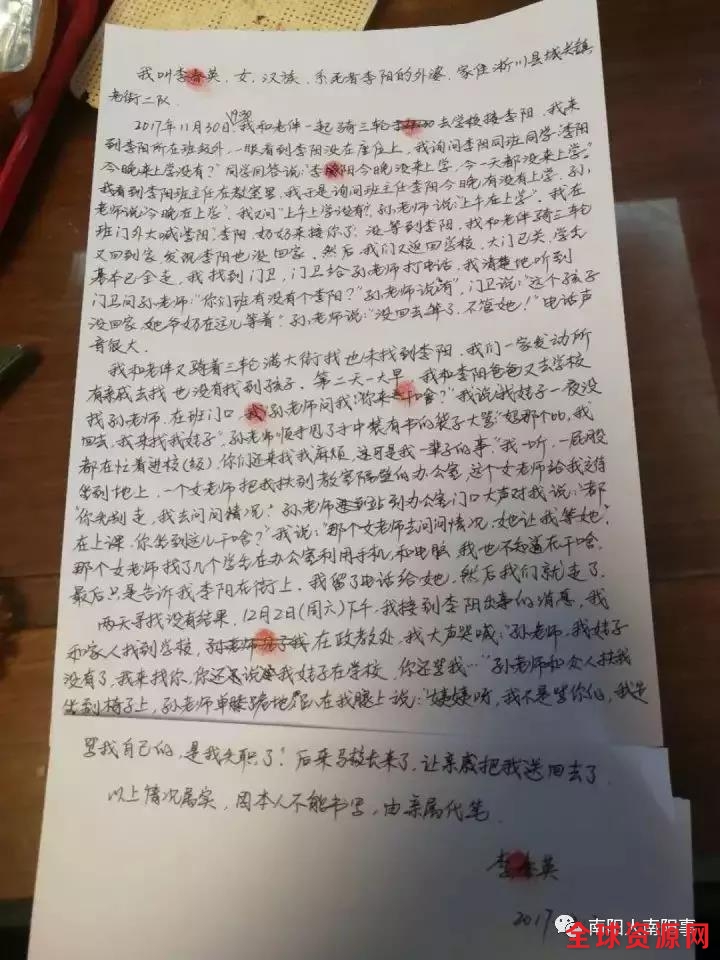 我叫李春英，女，汉族，系死者李阳的外婆，家住淅川县城关镇
老街二队．
2017年11月30日，我和老伴一起骑三轮去学校接李阳，我来
到李阳所在班级外，一眼看到李阳没在座位上，我询问李阳同班同学："李阳
今晚来上学没有？"同学回答说："李阳今晚没来上学，今一天都没来上学。"
我看到李阳班主任在教室里，我于是询问班主任李阳今晚有没有上学，孙
老师说"今晚在上学"，我又问"上午上学没有？孙老师说："上午在上学"，我在
班门外大喊"李阳，李阳，奶奶来接你了，没等到李阳，我和老伴骑三轮
又回到家，发现李阳也没回家，然后，我们又返回学校，大门已关，学生
基本已全走，我找到门卫，门卫给孙老师打电话，我清楚地听到
门卫问孙老师："你们班有没有个李阳？"孙老师说"有"，门卫说："这个孩子
没回家，她爷奶在这儿等着"，孙老师说："没回去算了，不管她！"电话声
音很大．
我和老伴又骑着三轮满大街找也未找到李阳，我们一家发动所
有亲戚去找，也没有找到孩子．第二天一大早，我和李阳爸爸又去学校
找孙老师，在班门口，孙老师问我："你来干啥？"我说"我妮子一夜没
回去，我来找我妮子"，孙老师顺手甩了手中装有书的袋子大骂："好那个的，我
都在忙着进校(级)，你们还来找我麻烦，这可是我一辈子的事．"我一听，一屁股
坐到地上，一个女老师把我扶到教室隔壁的办公室，这个女老师给我交待
"你先别走，我去问问情况．"孙老师站到办公室门口大声对我说："都
在上课，你坐到这儿干啥？"我说："那个女老师去问问情况，她让我等她"．
那个女老师找了几个学生在办公室利用手机和电脑，我也不知道在干啥．
最后只是告诉我李阳在街上，我留了电话给她，然后我们就走了．
两天寻找没有结果，12月2日(周六)下午，我接到李阳出事的消息，我
和家人找到学校，在政教处，我大声哭喊："孙老师，我妮子
没有了，我来找你，你还说我妮子在学校，你还骂我…"孙老师和众人扶我
坐到椅子上，孙老师单膝跪地，趴在我腿上说："姨姨呀，我不是骂你们，我是
骂我自己的，是我失职了！后来马校长来了，让亲戚把我送回去了．
以上情况属实，因本人不能书写，由亲属代笔．
李春英
2017
南阳人南阳事
全球资源网